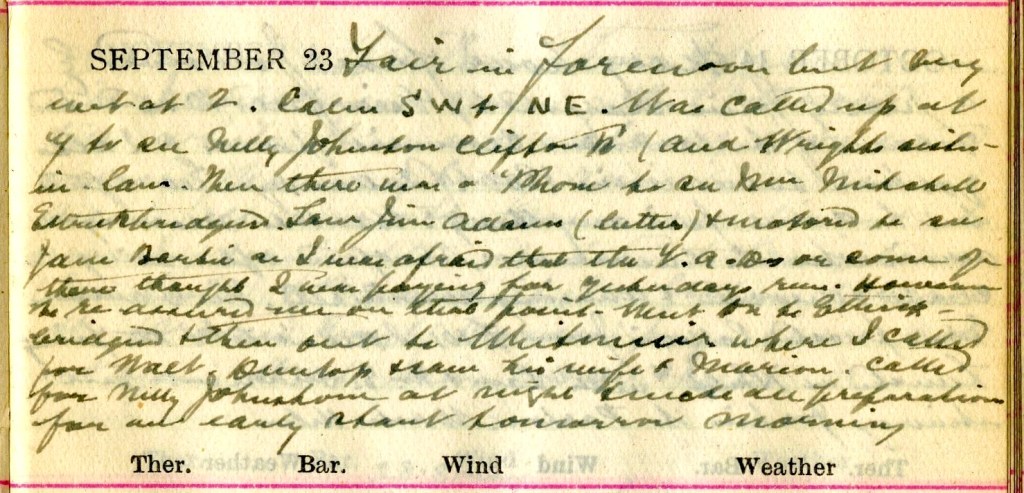 SEPTEMBER 23 Fair in forenoon but very
wet at 2. Calm SW & NE. Was called up at
7 to see Nelly Johnston Clifton (and Wrights sister-
in-law. Then there was a 'Phone to see Wm Mitchell
Ettrickbridgend. Saw Jim Adams (better) & motored to see
Jam Barbie as I was afraid that the V.A.Ds or some of
them thought I was paying for yesterdays run. However
he re-assured me on that point. Went on to Ettrick-
bridgend & then out to Whitmuir where I called
for Walt. Dunlop & saw his wife & Marion. Called
for Nelly Johnstone at night & made all preparation
for an early start tomorrow morning
Ther. Bar. Wind Weather